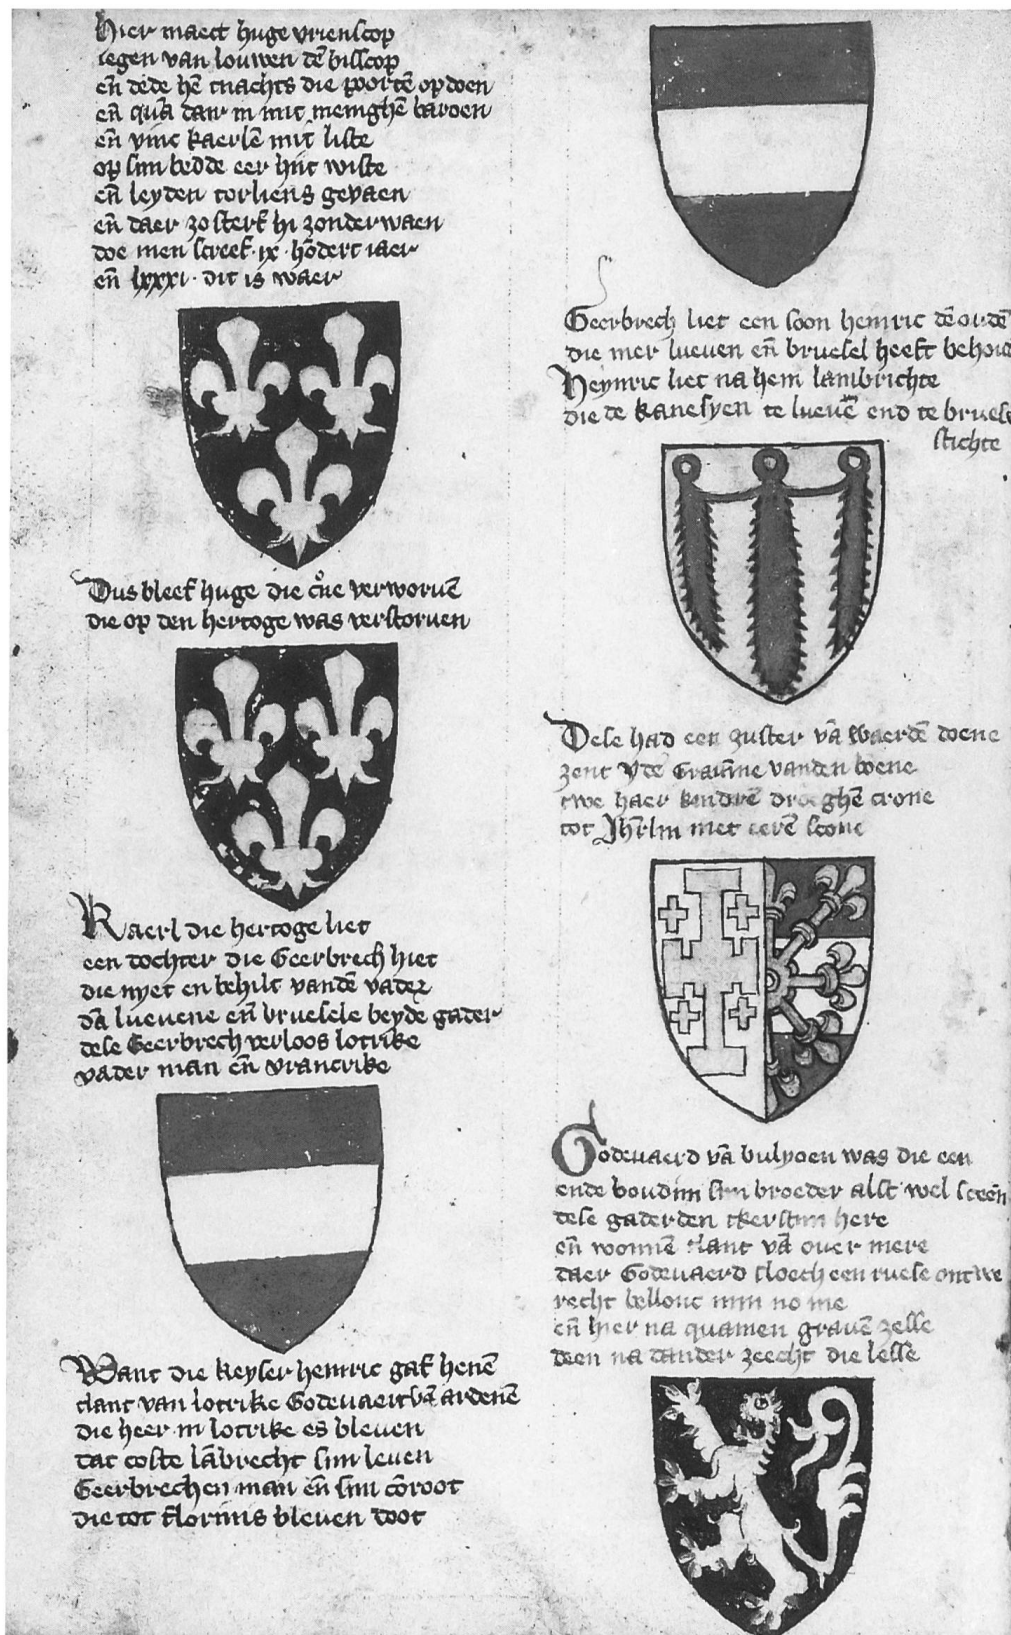 hier maect huge vrienscop
iegen van louwen dē bisscop
eñ dede hē tnachts die poortē opdoen
eñ quā daer in mit menighē baroen
eñ vinc kaerlē mit liste
op sijn bedde eer hijt wiste
eñ leyden torliens gevaen
eñ daer zo sterf hi zonder waen
doe men screef · ix · hōdert iaer
eñ lxxxi · dit is waer
Dus bleef huge die cͦne verworvē
die op den hertoge was verstorven
Kaerl die hertoge liet
een dochter die Geerbrech hiet
die nyet en behilt vandē vader
dā lueuene eñ bruesele beyde gader
dese Geerbrech verloos lotrike
vader man eñ vrancrike
Want die keyser heinric gaf henē
tlant van lotrike Godeuaert vā ardenē
die heer in lotrike es bleuen
dat coste lābrecht sijn leuen
Geerbrechen man eñ sijn cōroot
die tot florinis bleuen doot
Geerbrech liet een soon heinric dē ordē
die mer lueuen eñ bruesel heeft behou
Heynric liet na hem lambrichte
die de kanesyen te lueuē end te bruese
stichte
Dese had een zuster vā waerdē doene
zent yde Grauīne vanden boene
twe haer kindrē droeghē crone
tot Jhrlm met eerē scone
Godeuaerd vā bulyoen was die een
ende boudijn sijn broeder alst wel sceen
dese gaderden tkerstijn here
eñ wonnē tlant vā ouer mere
daer Godeuaerd sloech een ruese ontwe
recht bellonc min no me
eñ hier na quamen grauē zesse
deen na dander zeecht die lesse